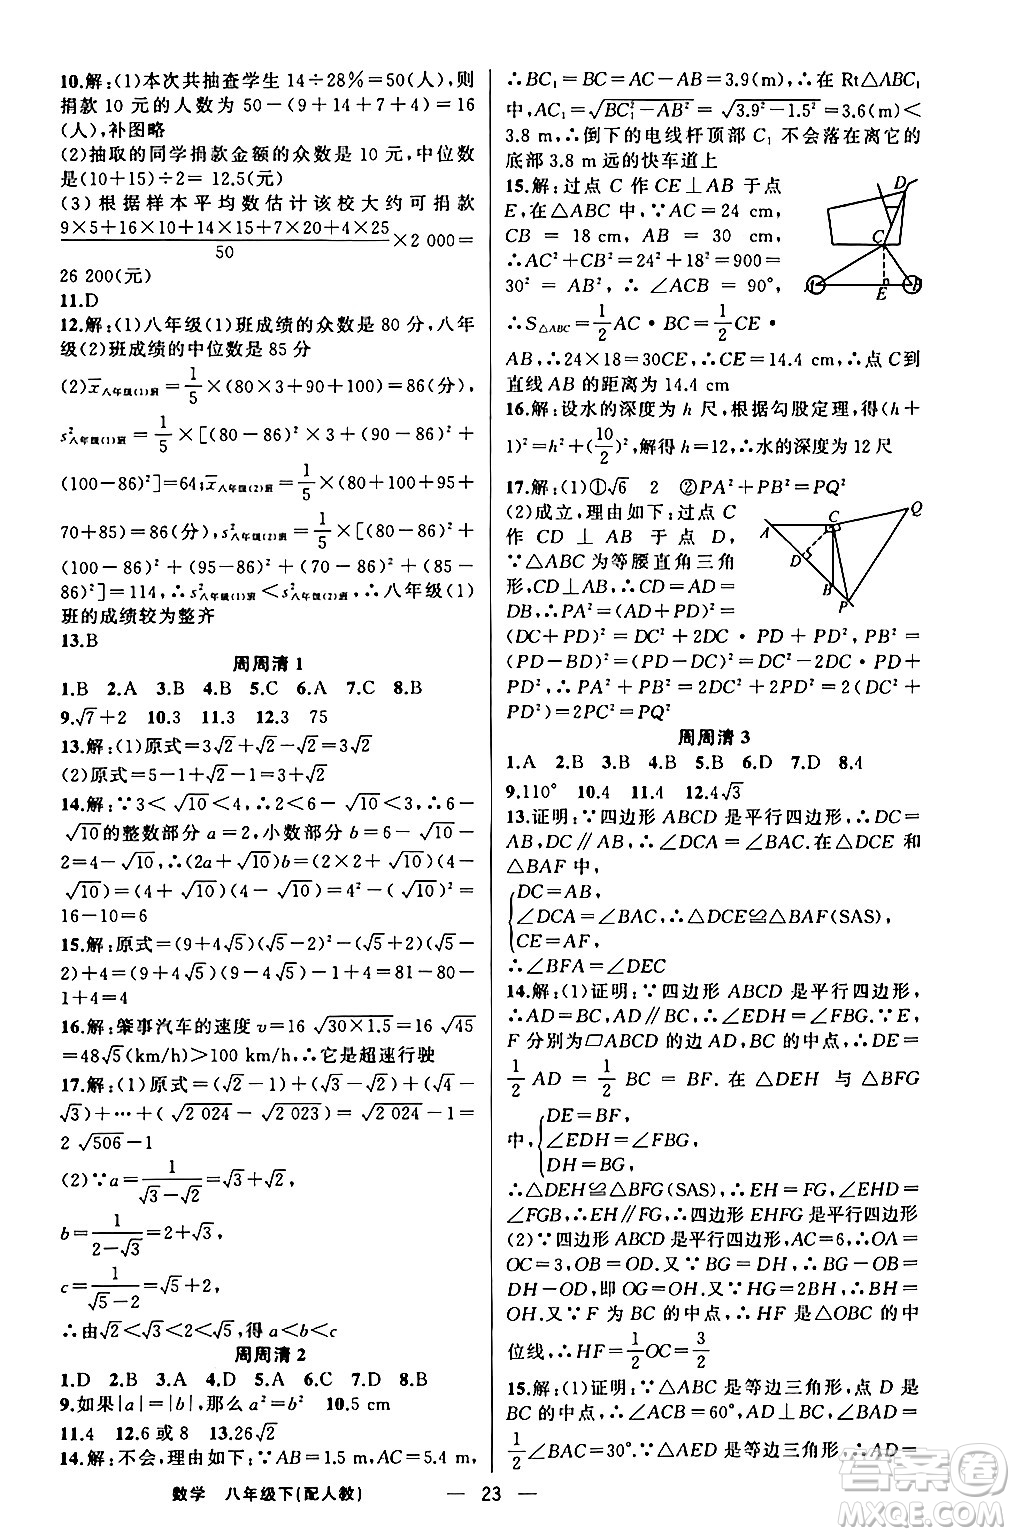 10.解:(1)本次共抽查学生14÷28%=50(人),则
捐款10元的人数为50-(9+14+7+4)=16
(人),补图略
(2)抽取的同学捐款金额的众数是10元,中位数
是(10+15)÷2= 12.5(元)
(3)根据样本平均数估计该校大约可捐款
(9×5+16×10+14×15+7×20+4×25)/50 ×2 000=
26 200(元)
11.D
12.解:(1)八年级(1)班成绩的众数是80分,八年
级(2)班成绩的中位数是85分
(2)x̄八年级(1)班=1/5×(80×3+90+100)=86(分),
s²八年级(1)班=1/5×[(80-86)²×3+(90-86)²+
(100-86)²]=64;x̄八年级(2)班=1/5×(100+100+95+
70+85)=86(分),s²八年级(2)班=1/5×[(100-86)²+
(100-86)²+(95-86)²+(70-86)²+(85-
86)²]=114,∴s²八年级(1)班<s²八年级(2)班,∴八年级(1)
班的成绩较为整齐
13.B
周周清1
1.B 2.A 3.B 4.B 5.C 6.A 7.C 8.B
9.√7+2 10.3 11.3 12.3 75
13.解:(1)原式=3√2+√2-√2=3√2
(2)原式=5-1+√2-1=3+√2
14.解:∵3<√10<4,∴2<6-√10<3,∴6-
√10的整数部分a=2,小数部分b=6-√10-
2=4-√10,∴(2a+√10)b=(2×2+√10)(4-
√10)=(4+√10)(4-√10)=4²-(√10)²=
16-10=6
15.解:原式=(9+4√5)(√5-2)²-(√5+2)(√5-
2)+4=(9+4√5)(9-4√5)-1+4=81-80-
1+4=4
16.解:肇事汽车的速度v=16√(30×1.5)=16√45
=48√5(km/h)>100 km/h,∴它是超速行驶
17.解:(1)原式=(√2-1)+(√3-√2)+(√4-
√3)+…+(√2 024-√2 023)=√2 024-1=
2√506-1
(2)∵a=1/(√3-√2)=√3+√2,
b=1/(2-√3)=2+√3,
c=1/(√5-2)=√5+2,
∴由√2<√3<2<√5,得a<b<c
周周清2
1.D 2.B 3.A 4.D 5.A 6.C 7.D 8.B
9.如果|a|=|b|,那么a²=b² 10.5 cm
11.4 12.6或8 13.26√2
14.解:不会,理由如下:∵AB=1.5 m,AC=5.4 m,
∴BC₁=BC=AC-AB=3.9(m),∴在Rt△ABC₁
中,AC₁=√(BC₁²-AB²)=√(3.9²-1.5²)=3.6(m)<
3.8 m,∴倒下的电线杆顶部C₁不会落在离它的
底部3.8 m远的快车道上
15.解:过点C作CE⊥AB于点
E,在△ABC中,∵AC=24 cm,
CB=18 cm,AB=30 cm,
∴AC²+CB²=24²+18²=900=
30²=AB²,∴∠ACB=90°,
∴S△ABC=1/2AC·BC=1/2CE·
AB,∴24×18=30CE,∴CE=14.4 cm,∴点C到
直线AB的距离为14.4 cm
D
C
A
E
B
16.解:设水的深度为h尺,根据勾股定理,得(h+
1)²=h²+(10/2)²,解得h=12,∴水的深度为12尺
17.解:(1)①√6 2 ②PA²+PB²=PQ²
(2)成立,理由如下:过点C
作CD⊥AB于点D,
∵△ABC为等腰直角三角
形,CD⊥AB,∴CD=AD=
DB,∴PA²=(AD+PD)²=
(DC+PD)²=DC²+2DC·PD+PD²,PB²=
(PD-BD)²=(PD-DC)²=DC²-2DC·PD+
PD²,∴PA²+PB²=2DC²+2PD²=2(DC²+
PD²)=2PC²=PQ²
A
C
Q
D
B
P
周周清3
1.A 2.B 3.C 4.B 5.B 6.D 7.D 8.A
9.110° 10.4 11.4 12.4√3
13.证明:∵四边形ABCD是平行四边形,∴DC=
AB,AB∥DC,∴∠DCA=∠BAC.在△DCE和
△BAF中,
DC=AB,
∠DCA=∠BAC,∴△DCE≌△BAF(SAS),
CE=AF,
∴∠BFA=∠DEC
14.解:(1)证明:∵四边形ABCD是平行四边形,
∴AD=BC,AD∥BC,∴∠EDH=∠FBG.∵E,
F分别为▱ABCD的中点,∴DE=
1/2 AD=1/2 BC=BF.在△DEH与△BFG
中,
DE=BF,
∠EDH=∠FBG,
DH=BG,
∴△DEH≌△BFG(SAS),∴EH=FG,∠EHD=
∠FGB,∴EH∥FG,∴四边形EHFG是平行四边形
(2)∵四边形ABCD是平行四边形,AC=6,∴OA=
OC=3,OB=OD.又∵BG=DH,∴OB-BG=
OD-DH,即OG=OH.∵HG=2BH,∴BH=
OH.又∵F为BC的中点,∴HF是△OBC的中
位线,∴HF=1/2OC=3/2
15.解:(1)证明:∵△ABC是等边三角形,点D是
BC的中点,∴∠BAC=60°,AD⊥BC,∠DAC=
1/2∠BAC=30°.∵△AED是等边三角形,∴AD=
数学 八年级下(配人教) — 23 —
答案圈
MXQE.COM